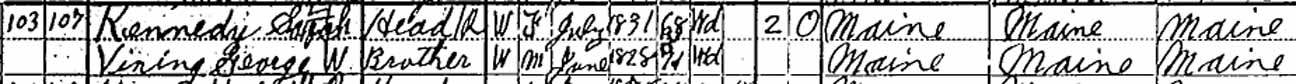 103 107 Kennedy Sarah Head R W F July 1831 68 Wd 2 0 Maine Maine Maine
Vining George W. Brother W M June 1828 71 Wd Maine Maine Maine